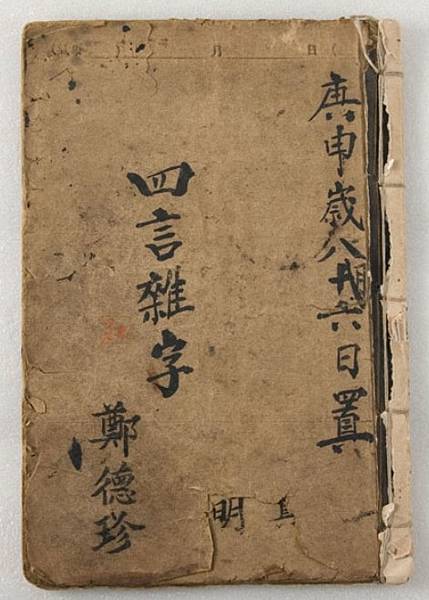 月 日
庚申歲八月十六日置
四言雜字
鄭德珍
明